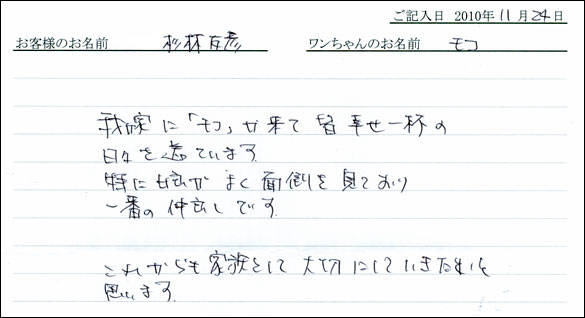 ご記入日 2010年11月24日
お客様のお名前 杉林友彦 ワンちゃんのお名前 モコ
我家に「モコ」が来て皆幸せ一杯の
日々を送ています。
特に姉がよく面倒を見ており
一番の仲良しです。
これからも家族として大切にしていきたいと
思います。